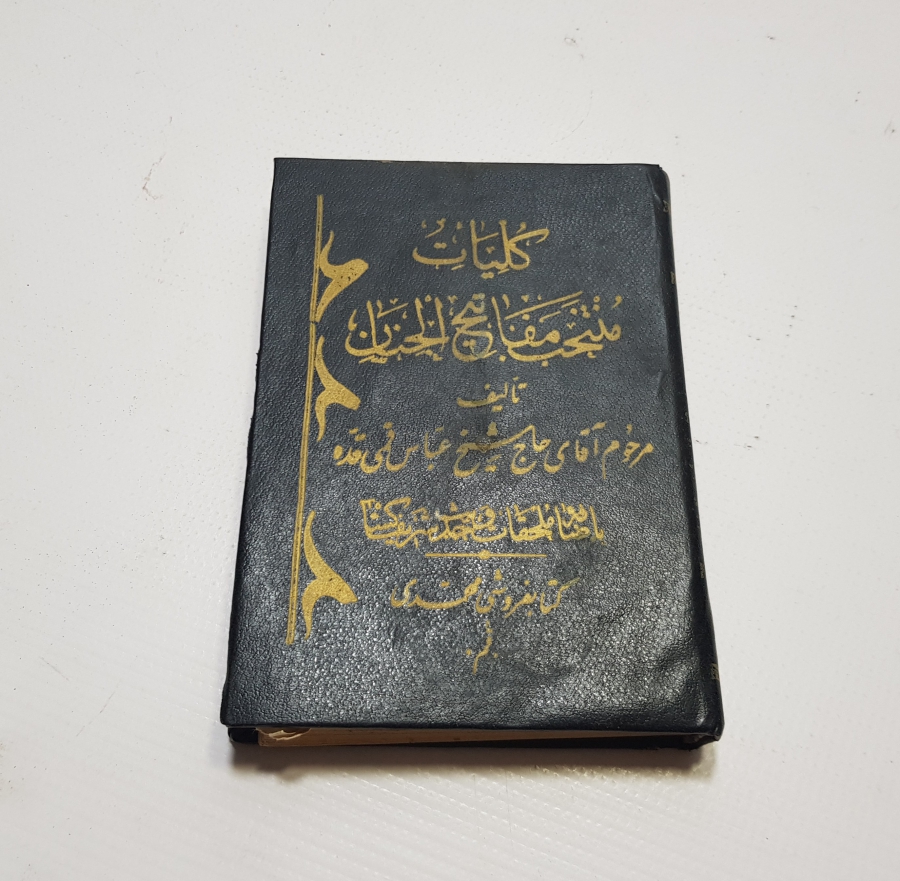 كُلِّيَاتِ
مُنْتَخَب مَفَاتيحُ الْجَنان
تأليف
مرحوم آقای حاج شیخ عباس قمی قده
با ملحقات شریف کسا
کتابفروشی محمدی
قم